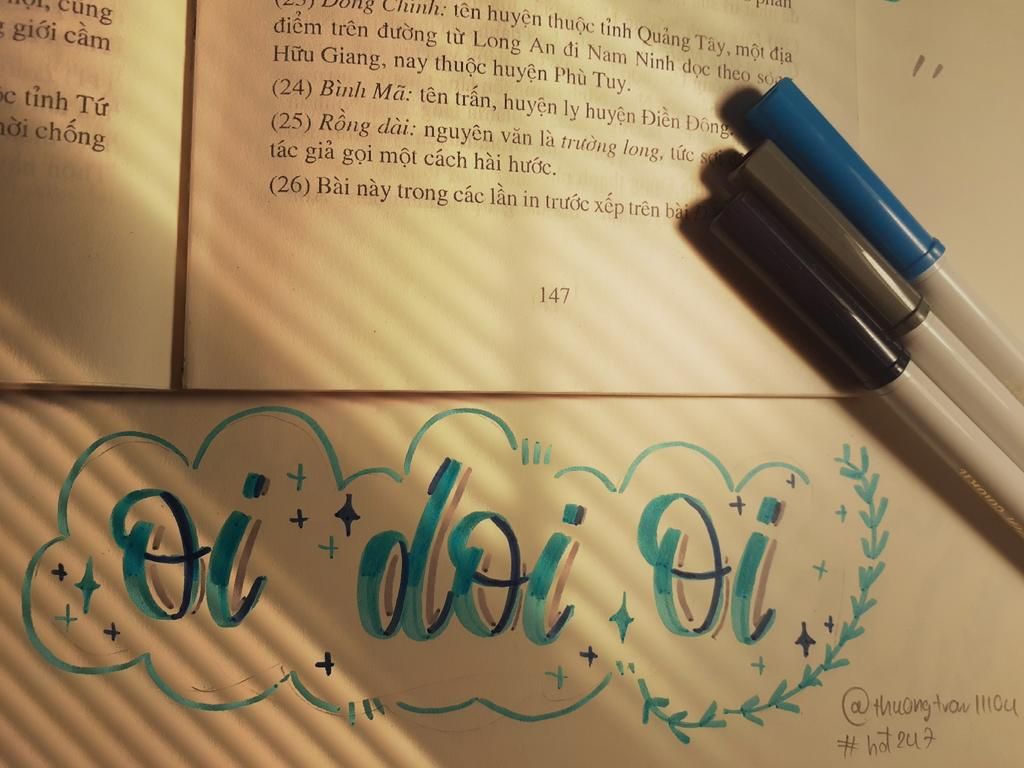 ội, cũng
giới cầm
ộc tỉnh Tứ
hời chống
(23) Đồng Chính: tên huyện thuộc tỉnh Quảng Tây, một địa
điểm trên đường từ Long An đi Nam Ninh dọc theo sông
Hữu Giang, nay thuộc huyện Phù Tuy.
(24) Bình Mã: tên trấn, huyện lỵ huyện Điền Đông.
(25) Rồng dài: nguyên văn là trường long, tức
tác giả gọi một cách hài hước.
(26) Bài này trong các lần in trước xếp trên bài
147
oi doi oi
@thuongtran1110u
#hdt247